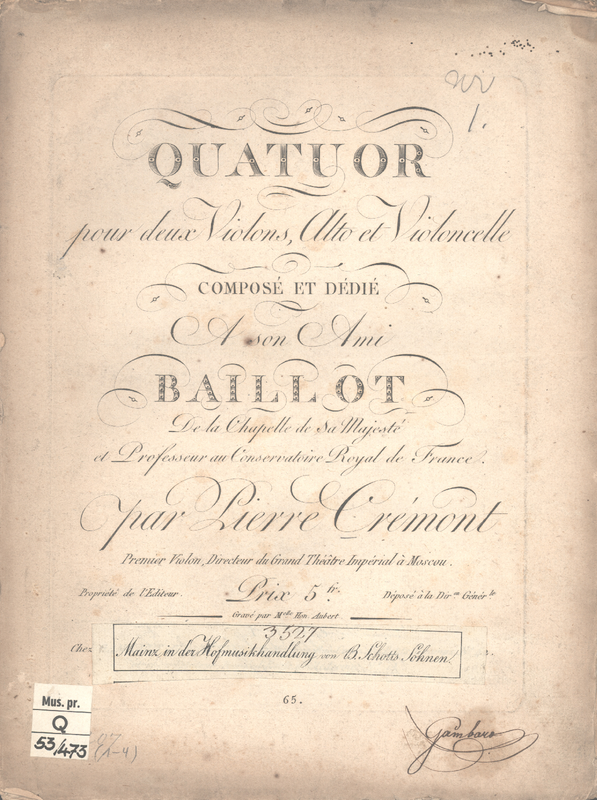 1.
QUATUOR
pour deux Violons, Alto et Violoncelle
COMPOSÉ ET DÉDIÉ
A son Ami
BAILLOT
De la Chapelle de Sa Majesté
et Professeur au Conservatoire Royal de France.
par Pierre Crémont
Premier Violon, Directeur du Grand Théâtre Impérial à Moscou.
Propriété de l'Editeur. Prix 5 fr. Déposé à la Dir.on Génér.le
Gravé par Melle Hon. Aubert
3527
Chez
Mainz in der Hofmusikhandlung von B. Schotts Söhnen.
65.
Mus. pr.
Q
53/473
(1-4)
Gambaro